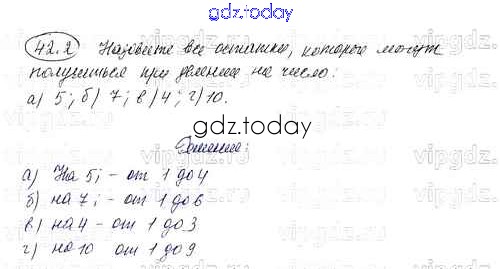 gdz.today
42.2 Назовите все остатки, которые могут
получиться при делении на число:
а) 5; б) 7; в) 4; г) 10.
gdz.today
Решение:
а) На 5; - от 1 до 4
б) на 7; - от 1 до 6
в) на 4 - от 1 до 3
г) на 10 от 1 до 9